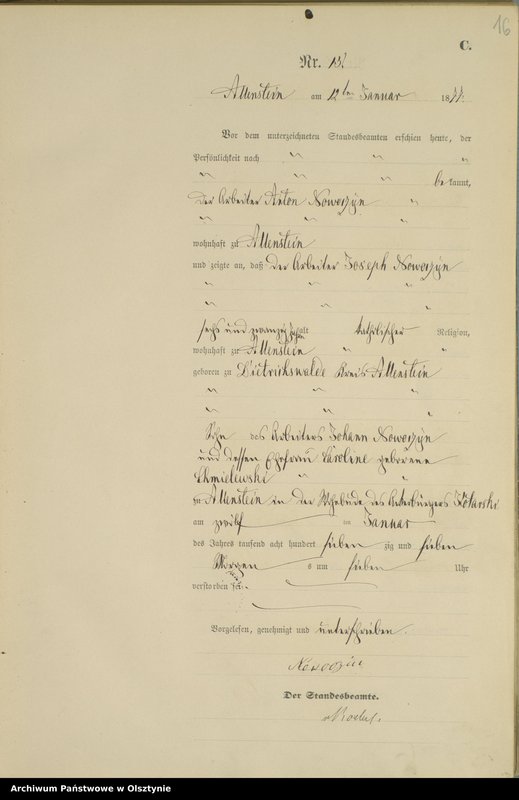 16
C.
Nr. 13.
Allenstein am 12ten Januar 1877.
Vor dem unterzeichneten Standesbeamten erschien heute, der
Persönlichkeit nach
be kannt,
der Arbeiter Anton Nowoczyn
wohnhaft zu Allenstein
und zeigte an, daß der Arbeiter Joseph Nowoczyn
sechs und zwanzig Jahre alt katholischer Religion,
wohnhaft zu Allenstein
geboren zu Dietrichswalde Kreis Allenstein
Sohn des Arbeiters Johann Nowoczyn
und dessen Ehefrau Caroline geborene
Chmielewski
zu Allenstein in der des Ackerbürgers
am zwölf ten Januar
des Jahres tausend acht hundert sieben zig und sieben
Morgen s um sieben Uhr
verstorben sei.
Vorgelesen, genehmigt und unterschrieben.
Der Standesbeamte.
Archiwum Państwowe w Olsztynie